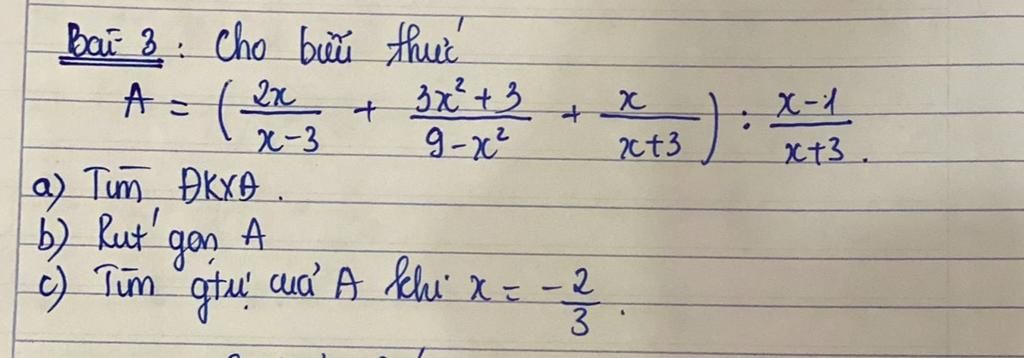 Bài 3 : Cho biểu thức
A = ( 2x / x-3 + 3x² + 3 / 9 - x² + x / x+3 ) : x-1 / x+3 .
a) Tìm ĐKXĐ .
b) Rút gọn A
c) Tìm gtrị của A khi x = - 2/3 .